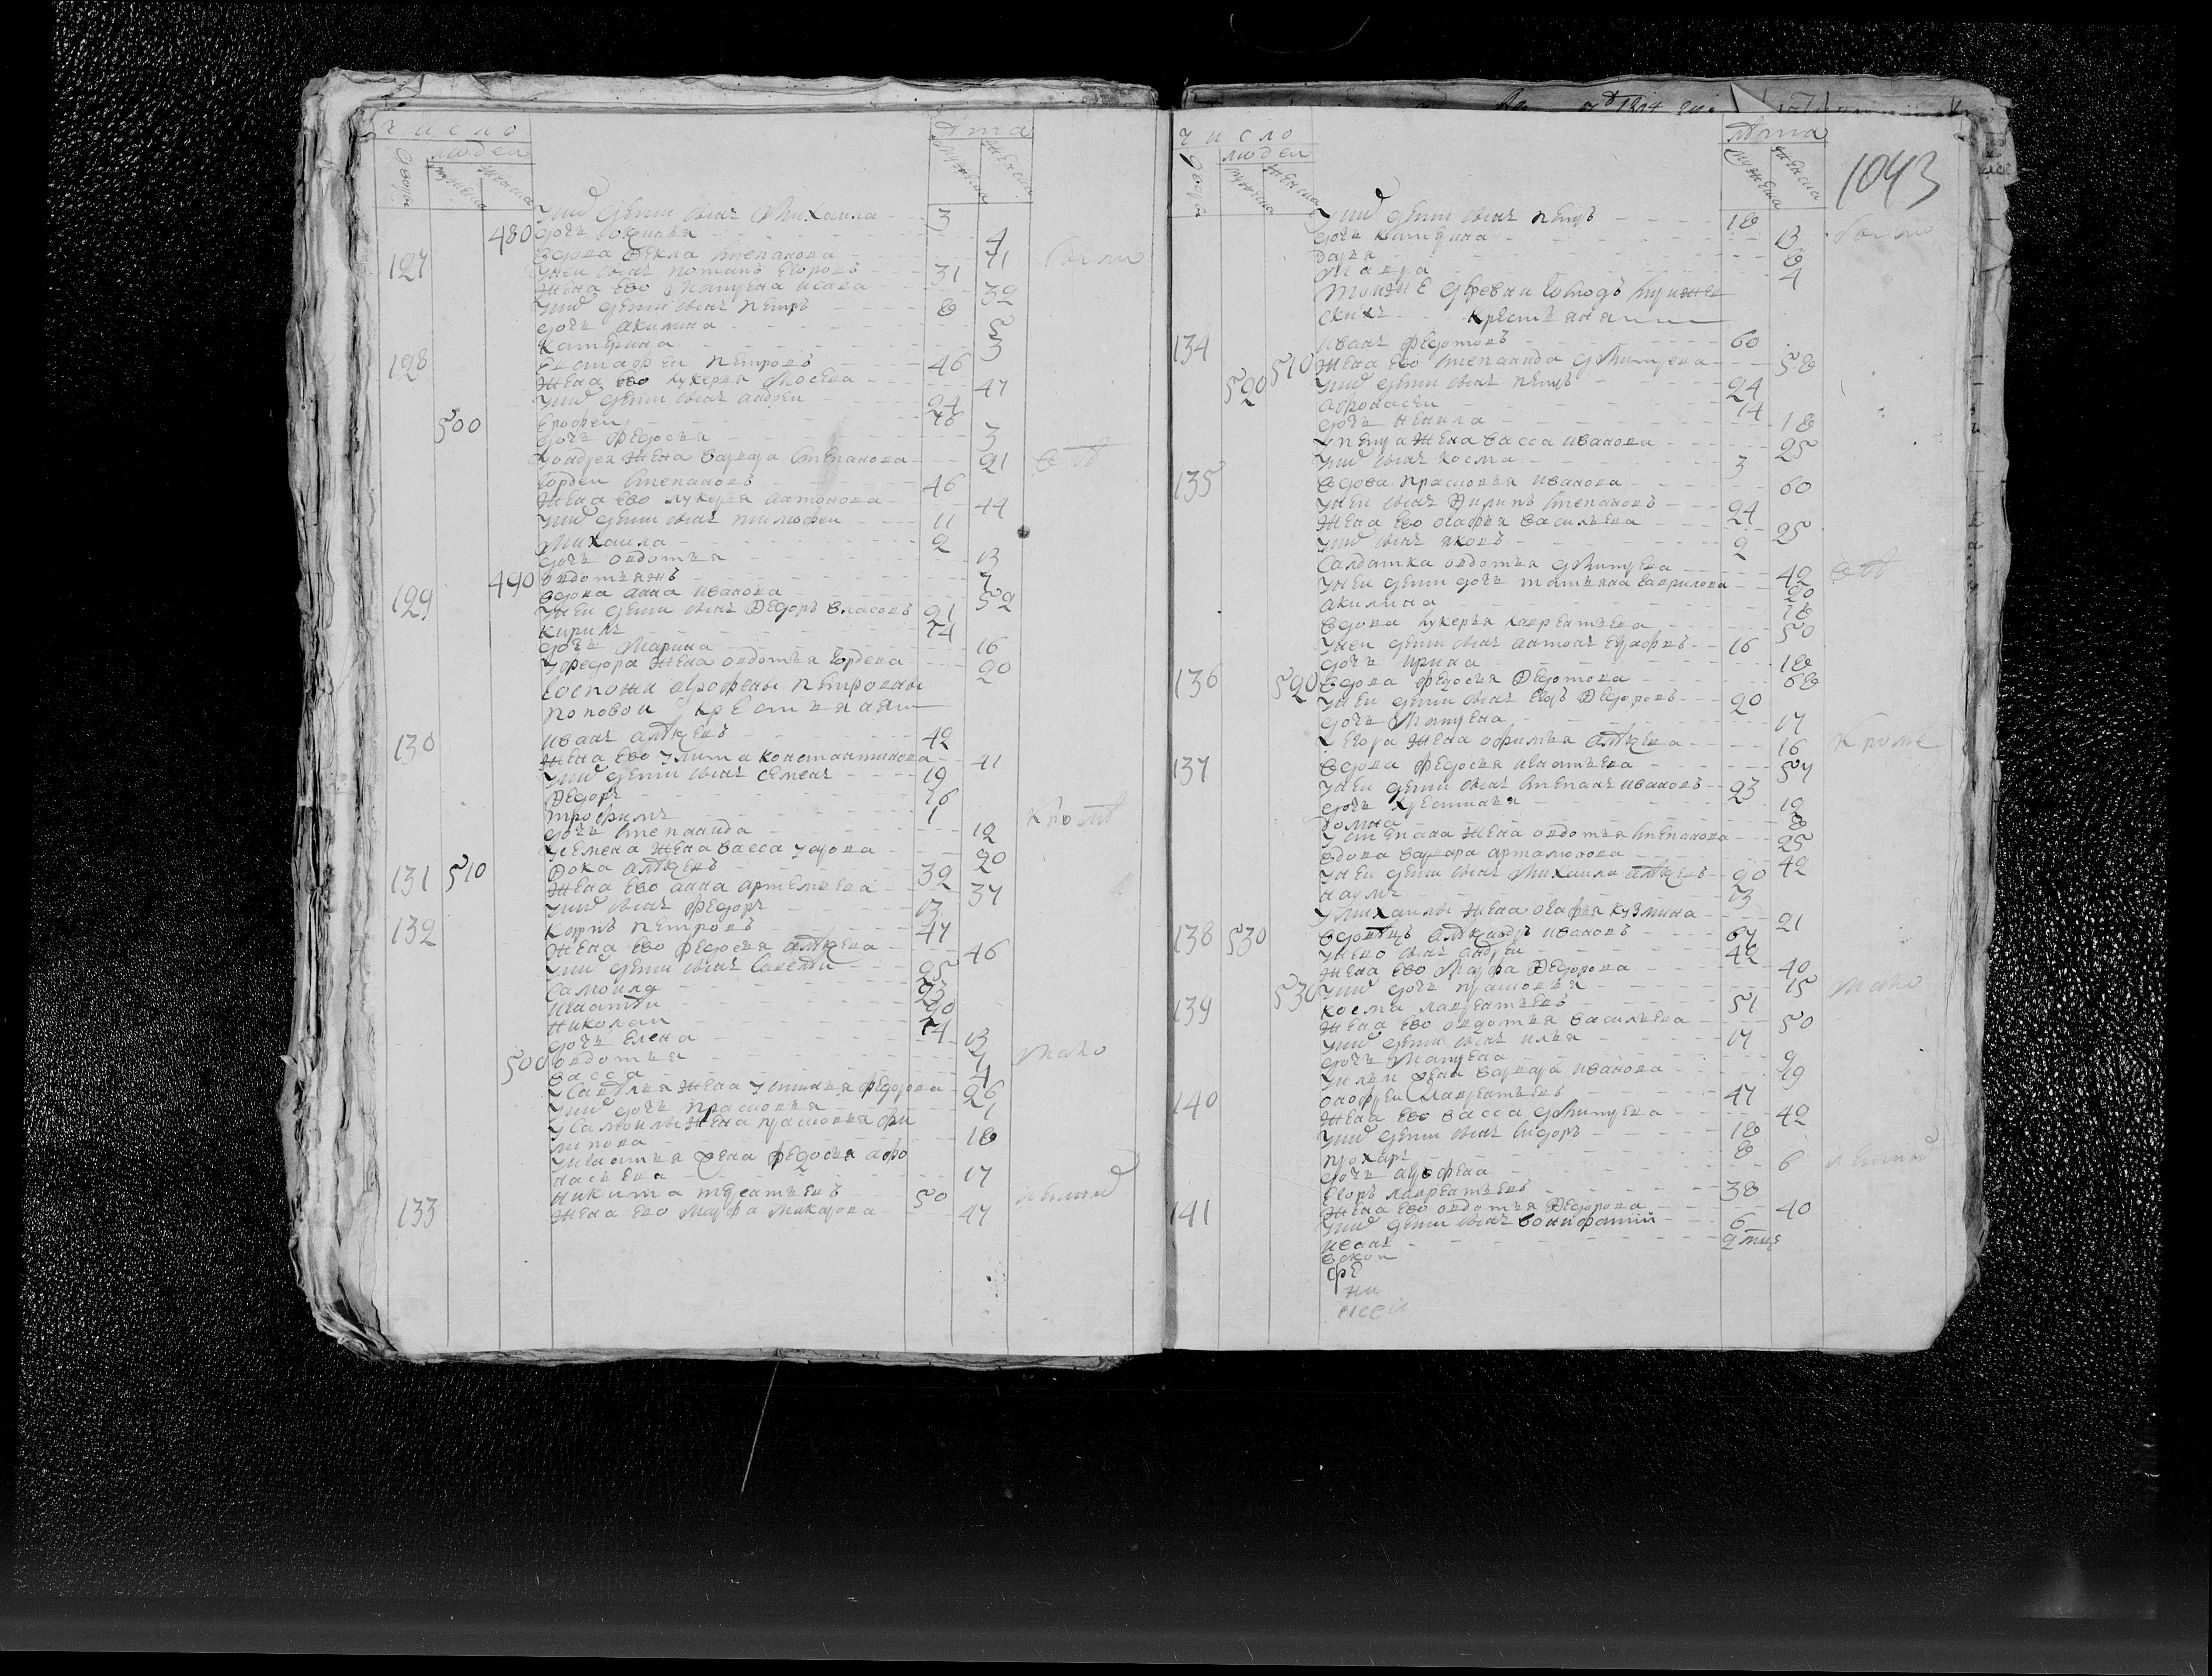 число
лѣта
двора
людей
мужеска
женска
мужеска
женска
у них дети сынъ Михаила 3
480 дочь 4
вдова Фекла Степанова 71
127 у неи сынъ Потапъ Егоровъ 31
жена ево Матрена Исаева 32
у них дети сынъ Петръ 8
дочь Акилина 5
Катерина 3
128 Евстафеи Петровъ 46
жена ево Лукерья Мосева 47
у них дети сынъ Андреи 24
500 Ерофеи 16
дочь Федосья 3
у Андрея жена Варвара Степанова 21
Гордеи Степановъ 46
жена ево Лукерья Антонова 44
у них дети сынъ Тимофеи 11
Михаила 2
дочь Овдотья 13
490 Овдотья жъ 7
вдова Анна Иванова 52
129 у неи дети сынъ Федоръ Власовъ 21
Кирилъ 14
дочь Марина 16
у Федора жена Овдотья Гордеева 20
Госпожи Агрофены Петровны
Поповои крестьяня
130 Иванъ Алѣксеевъ 42
жена ево Улита Константинова 41
у них дети сынъ Семенъ 19
Федоръ 16
Трофимъ 1
дочь Степанида 12
у Семена жена Васса Уарова 20
131 510 Фока Алѣксеевъ 32
жена ево Анна Артемьева 37
у них сынъ Федоръ 13
132 Карпъ Петровъ 47
жена ево Федосья Алѣксеева 46
у них дети сынъ Савелеи 25
Самоила 23
Игнатеи 20
Николаи 14
дочь Елена 13
500 Овдотья 7
Васса 4
у Савелья жена Устинья Федорова 26
у них дочь Прасковья 1
у Самоилы жена Прасковья Фи
липова 18
у Игнатья жена Федосья Афо
насьева 17
Никита Терентьевъ 50
133 жена ево Марфа Макарова 47
число
лѣта
двора
людей
мужеска
женска
мужеска
женска
1043
у них дети сынъ Петръ 18
дочь Катерина 13
Дарья 8
Мавра 4
Тоижъ деревни Господъ
скихъ крестьяня
134 Иванъ Федотовъ 60
510 жена ево Степанида Дмитрева 58
520 у них дети сынъ Петръ 24
Афонасеи 14
дочь Ненила 18
у Петра жена Васса Иванова 25
у них сынъ Косма 3
135 вдова Прасковья Иванова 60
у неи сынъ Филипъ Степановъ 24
жена ево Огафья Васильева 25
у них сынъ Яковъ 2
салдатка Овдотья Дмитрева 42
у неи дети дочь Татьяна Гаврилова 20
Акилина 18
вдова Лукерья Лаврентьева 50
у неи дети сынъ Антонъ Ерофеевъ 16
дочь Ирина 18
136 520 вдова Федосья Федотова 68
у неи дети сынъ Егоръ Федоровъ 20
дочь Матрена 17
у Егора жена Офимья Алѣксеева 16
137 вдова Федосья Игнатьева 57
у неи дети сынъ Степанъ Ивановъ 23
дочь Крестинья 12
Домна 8
у Степана жена Овдотья Степанова 25
вдова Варвара Артамонова 42
у неи дети сынъ Михаила Алѣксеевъ 20
Наумъ 13
у Михаилы жена Огафья Кузмина 21
138 530 вдовецъ Алѣксандръ Ивановъ 67
у нево сынъ Андреи 42
жена ево Марфа Федорова 40
530 у них дочь Прасковья 15
139 Косма Лаврентьевъ 51
жена ево Овдотья Васильева 50
у них дети сынъ Илья 17
дочь Матрена 9
у Ильи жена Варвара Иванова 19
140 Онофреи Лаврентьевъ 47
жена ево Васса Дмитрева 42
у них дети сынъ Сидоръ 18
Прохаръ 8
дочь Агрофена 6
Егоръ Лаврентьевъ 38
141 жена ево Овдотья Федорова 40
у них дети сынъ Вонифатии 6
Иванъ